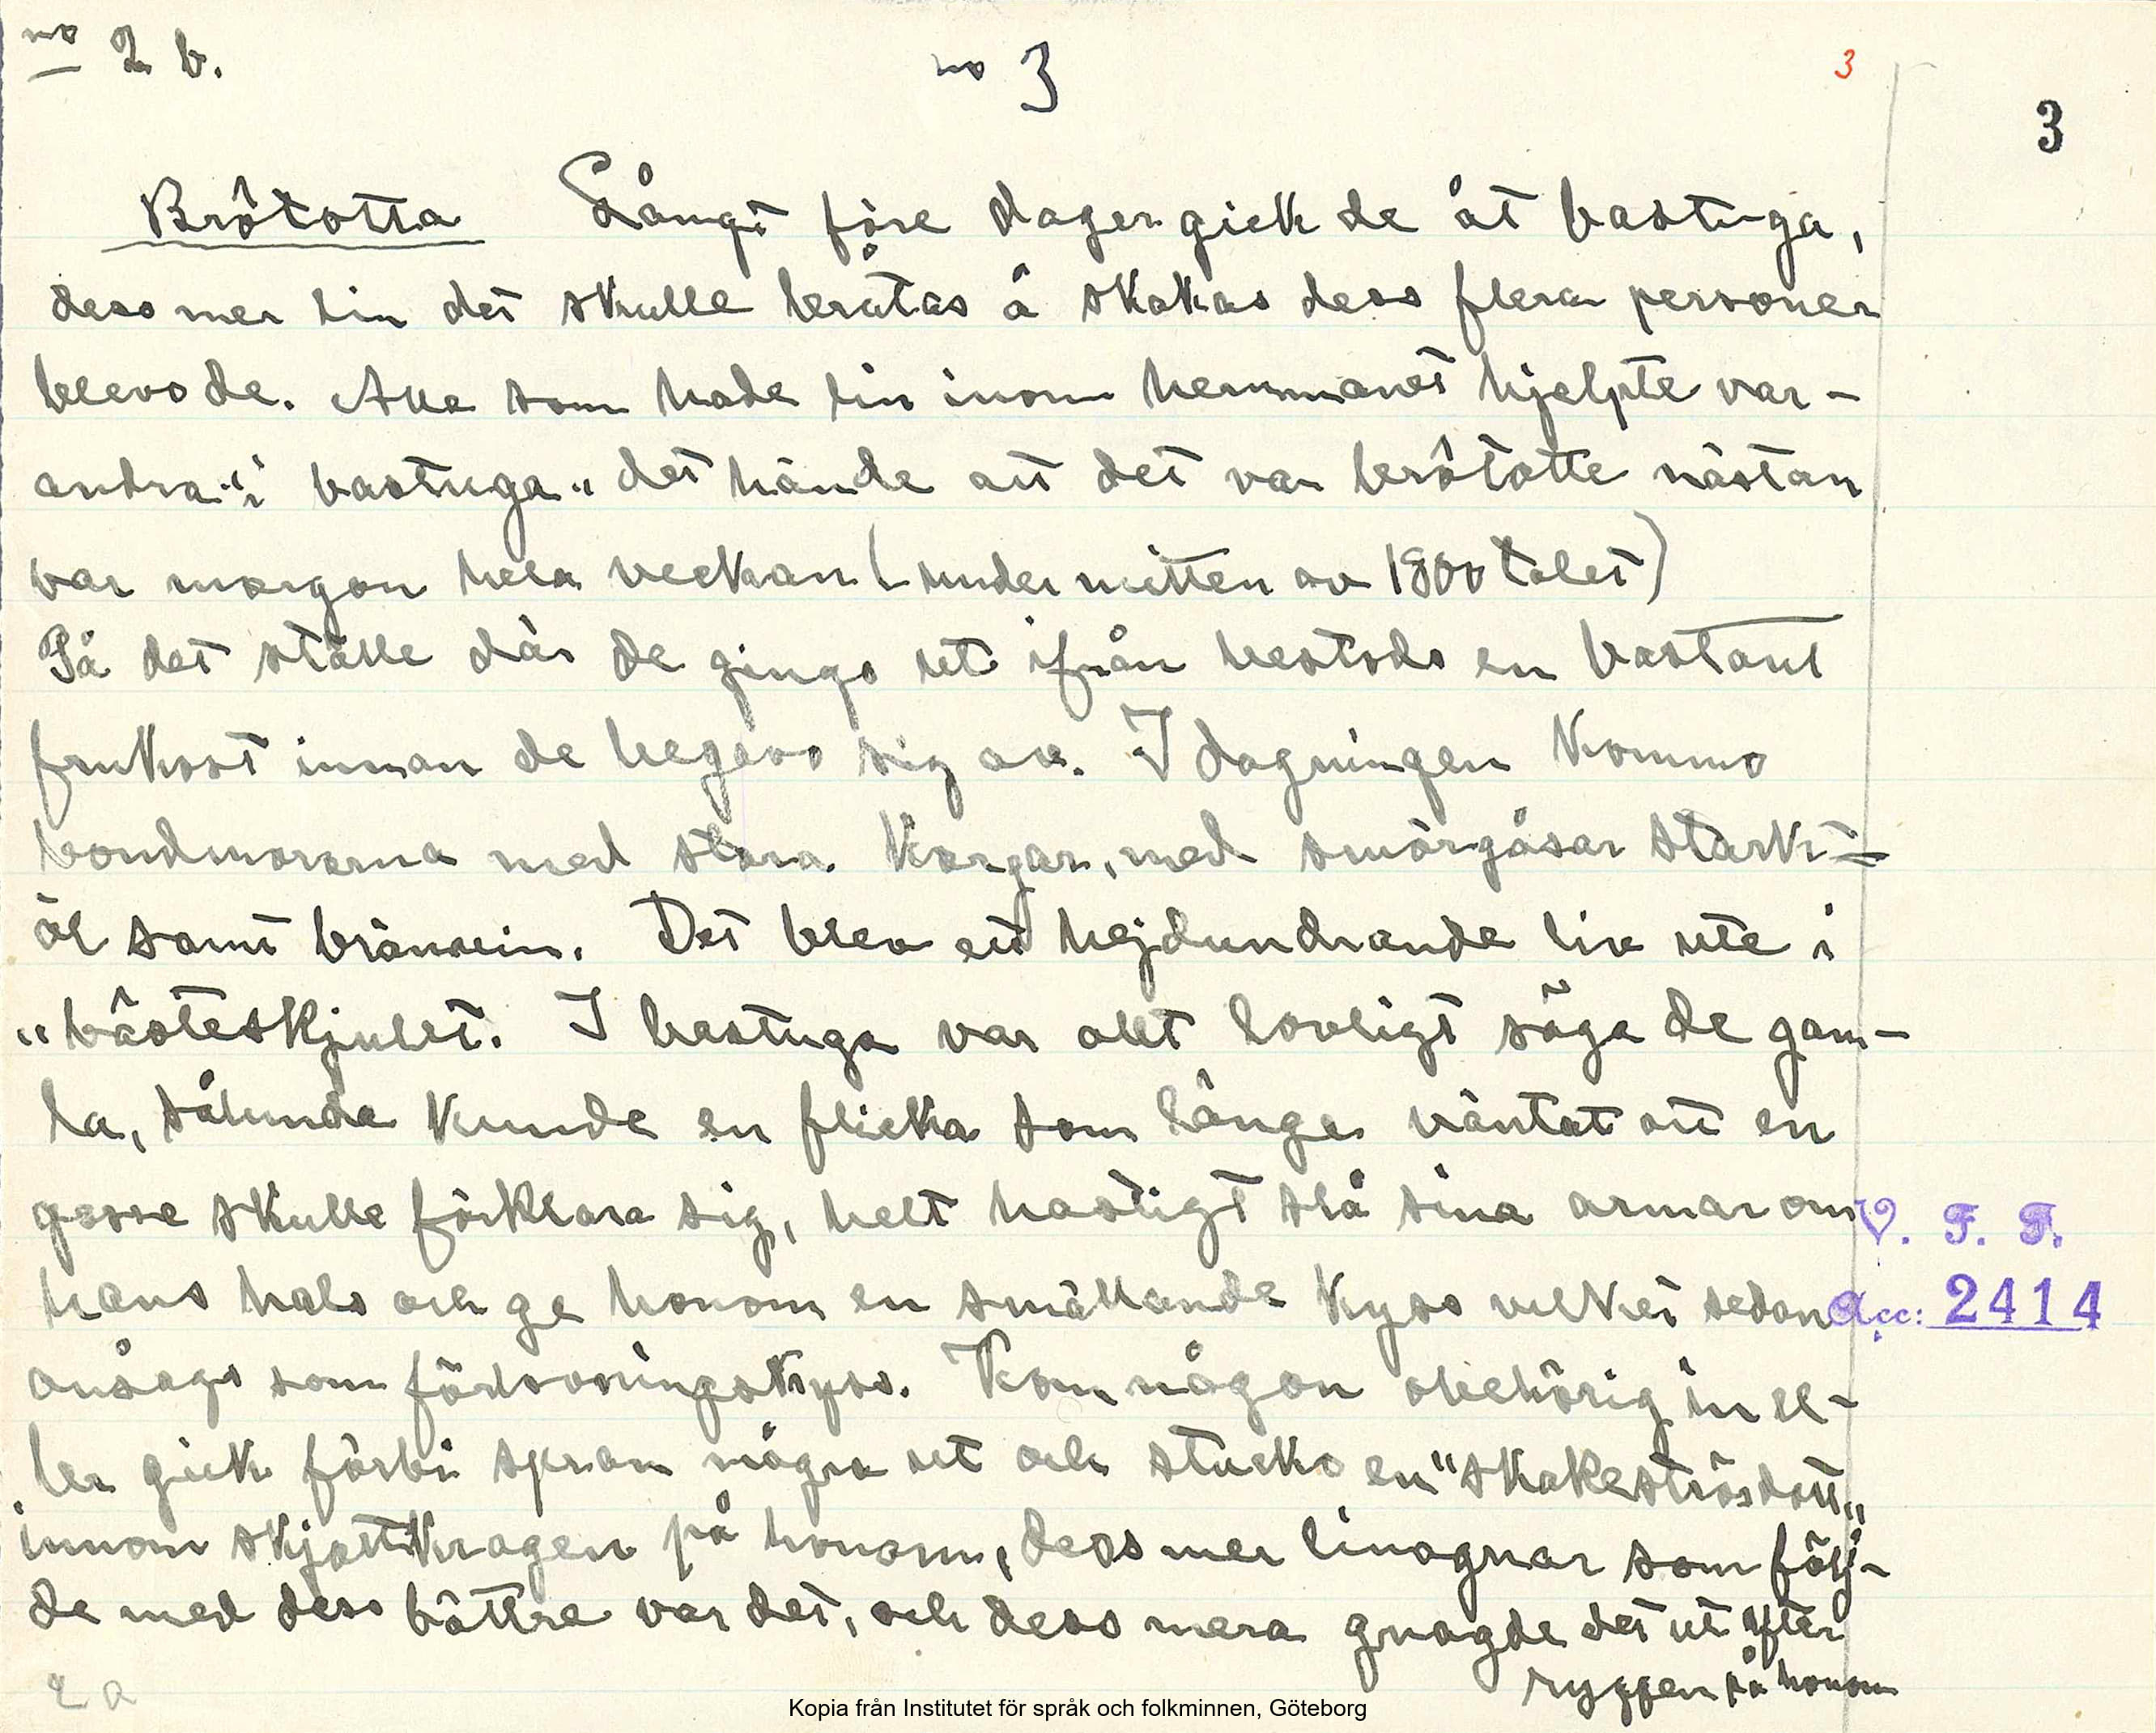 no 2 b.
no 3
3
3
Brôtotta Långt före dager gick de åt bastuga,
dess mer lin det skulle brôtas å skakas dess flera personer
blevo de. Alla som hade lin inom hemmanet hjelpte var-
andra "i bastuga" det hände att det var brôtotte nästan
var morgon hela veckan (under mitten av 1800 talet)
På det ställe där de gingo ut ifrån bestods en bastant
frukost innan de begavo sig av. I dagningen kommo
bondmororna med stora korgar, med smörgåsar starkt=
öl samt brännvin. Det blev ett hejdundrande liv ute i
"båsteskjulet. I bastuga var allt lovligt säga de gam-
la, sålunda kunde en flicka som länge väntat att en
gosse skulle förklara sig, helt hastigt slå sina armar om
hans hals och ge honom en smällande kyss vilket sedan
ansågs som förlovningskyss. Kom någon obehörig in el-
ler gick förbi spran några ut och stucko en "skakeströsdott"
innom skjottkragen på honom, dess mer linagnar som följ-
de med dess bättre var det, och dess mera gnagde det ut efter
ryggen på honom
V. F. F.
Acc: 2414
2 a
Kopia från Institutet för språk och folkminnen, Göteborg